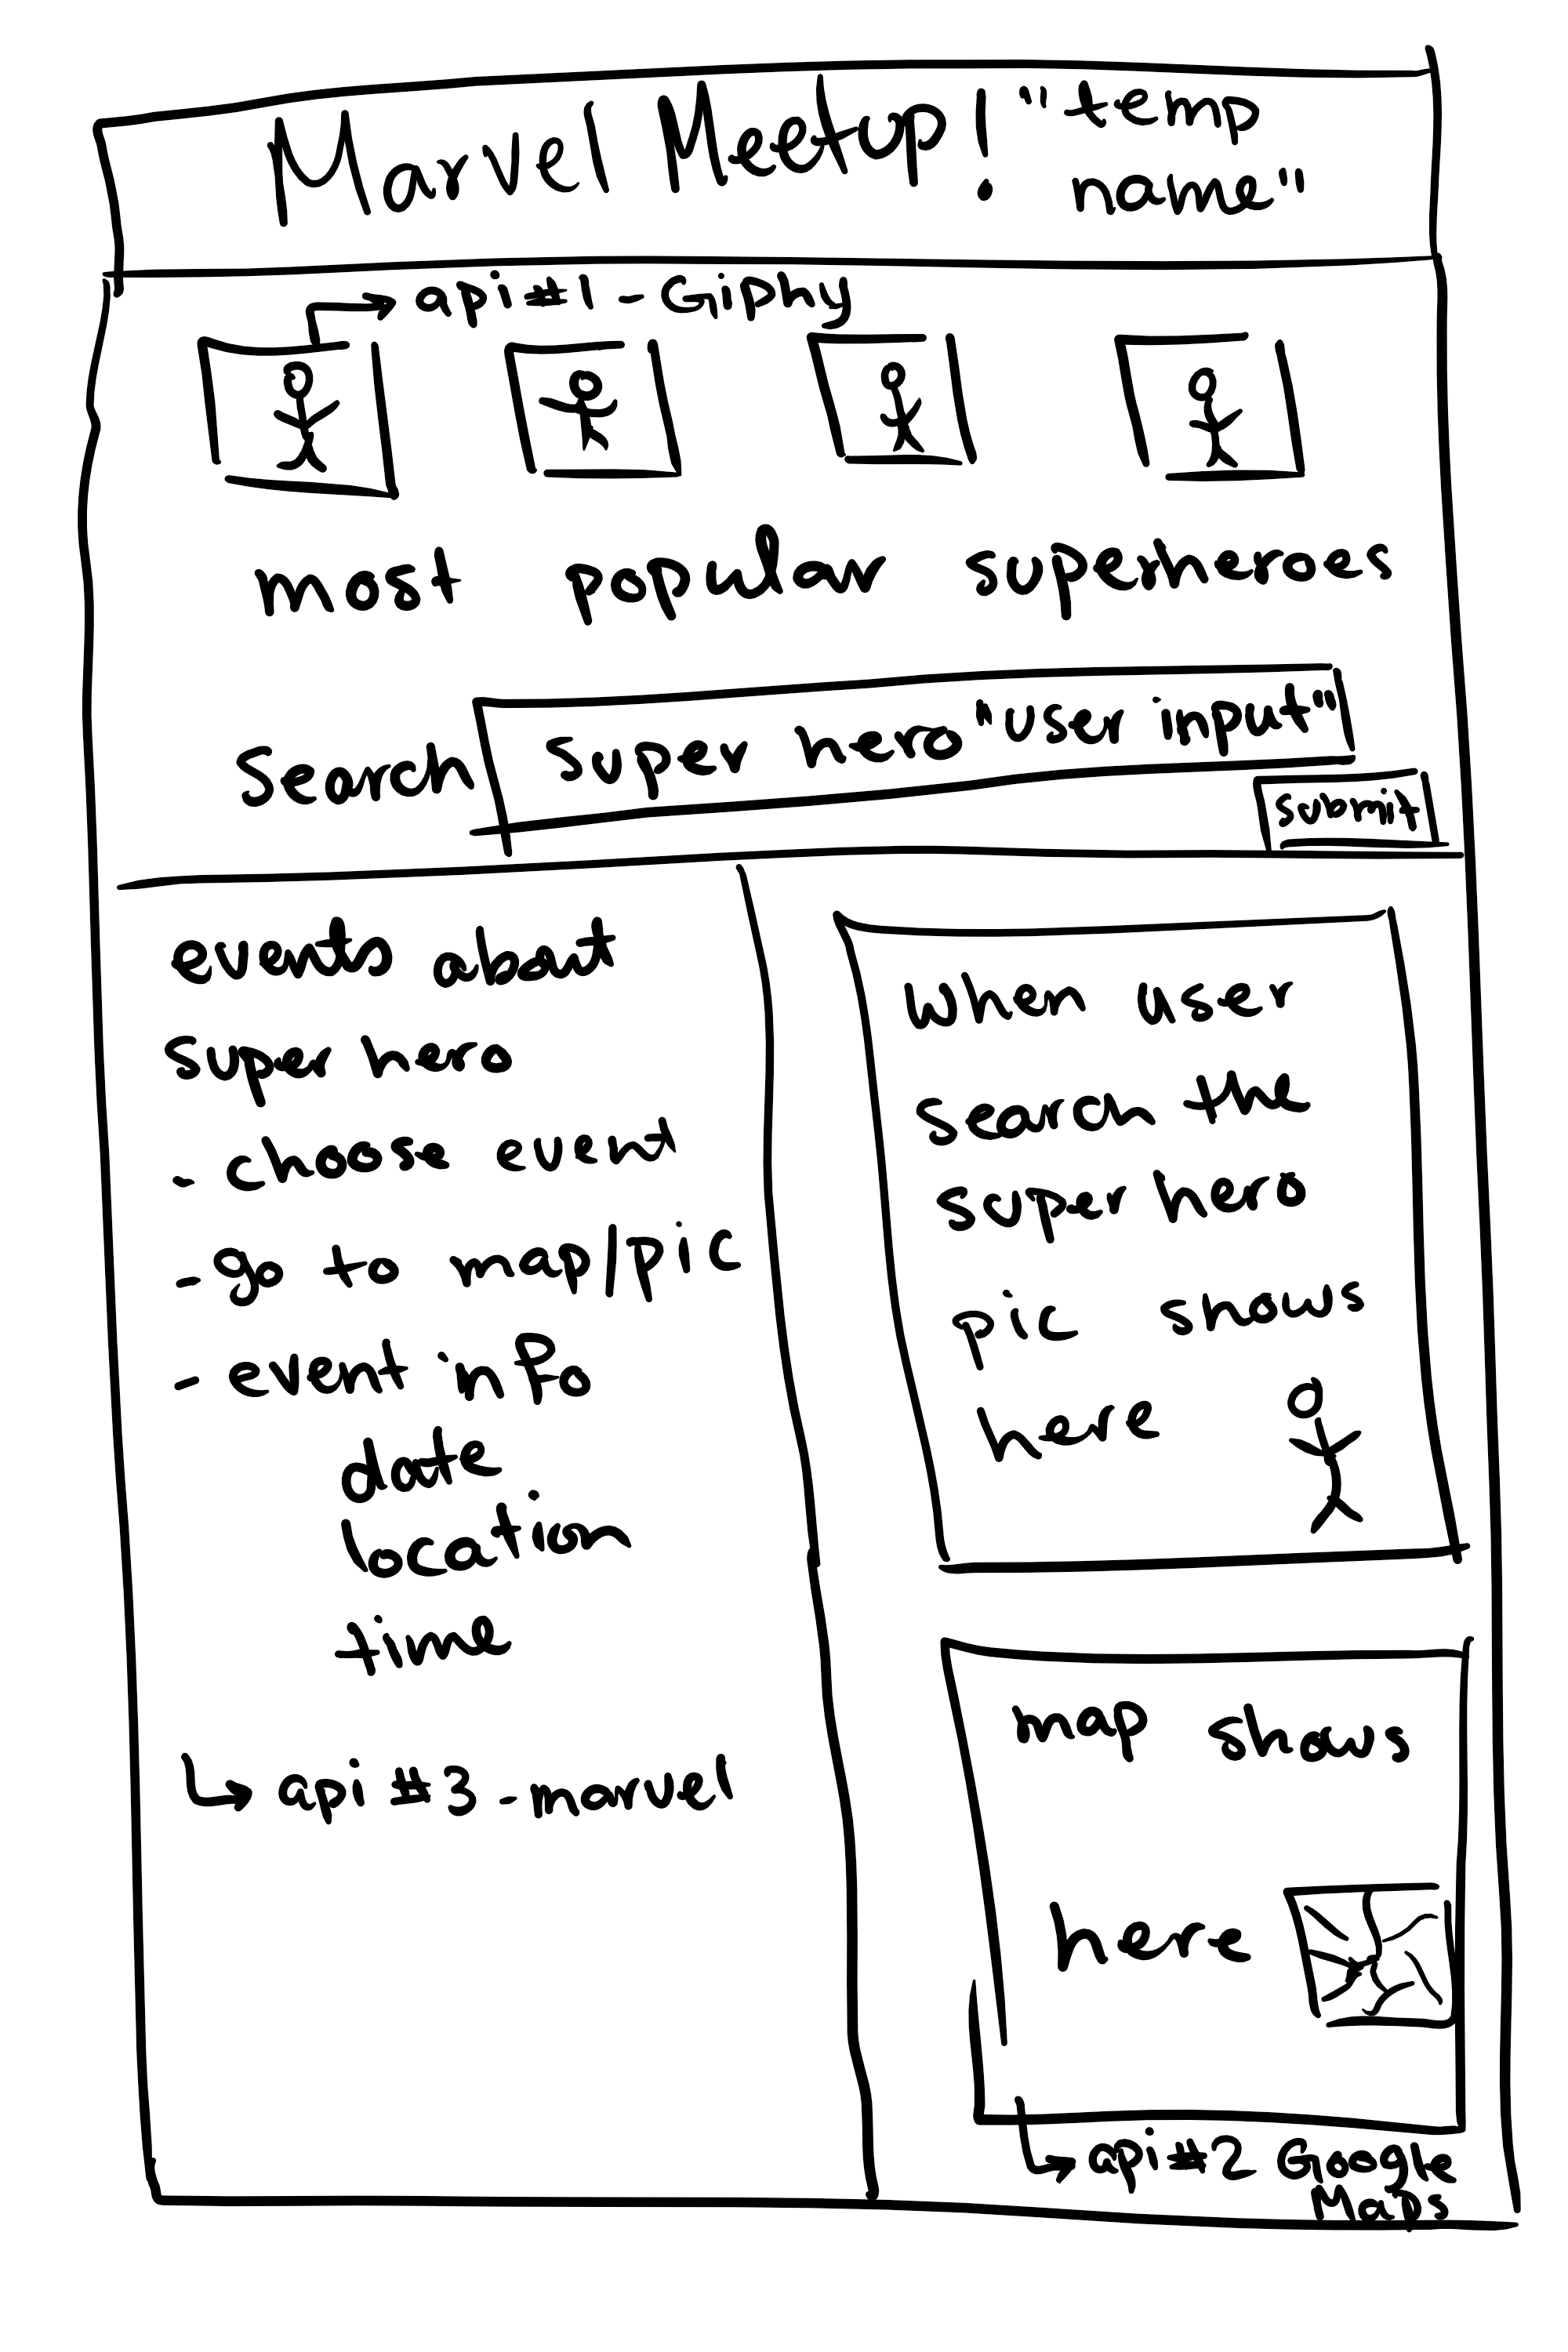 Marvel Meetup! "temp
name"
api #1 - Giphy
most popular superheroes
Search super hero "user input"
submit
events about
super hero
- choose event
- go to map/pic
- event info
date
location
time
api #3 - marvel
When user
search the
super hero
pic shows
here
map shows
here
api #2 Google
Maps